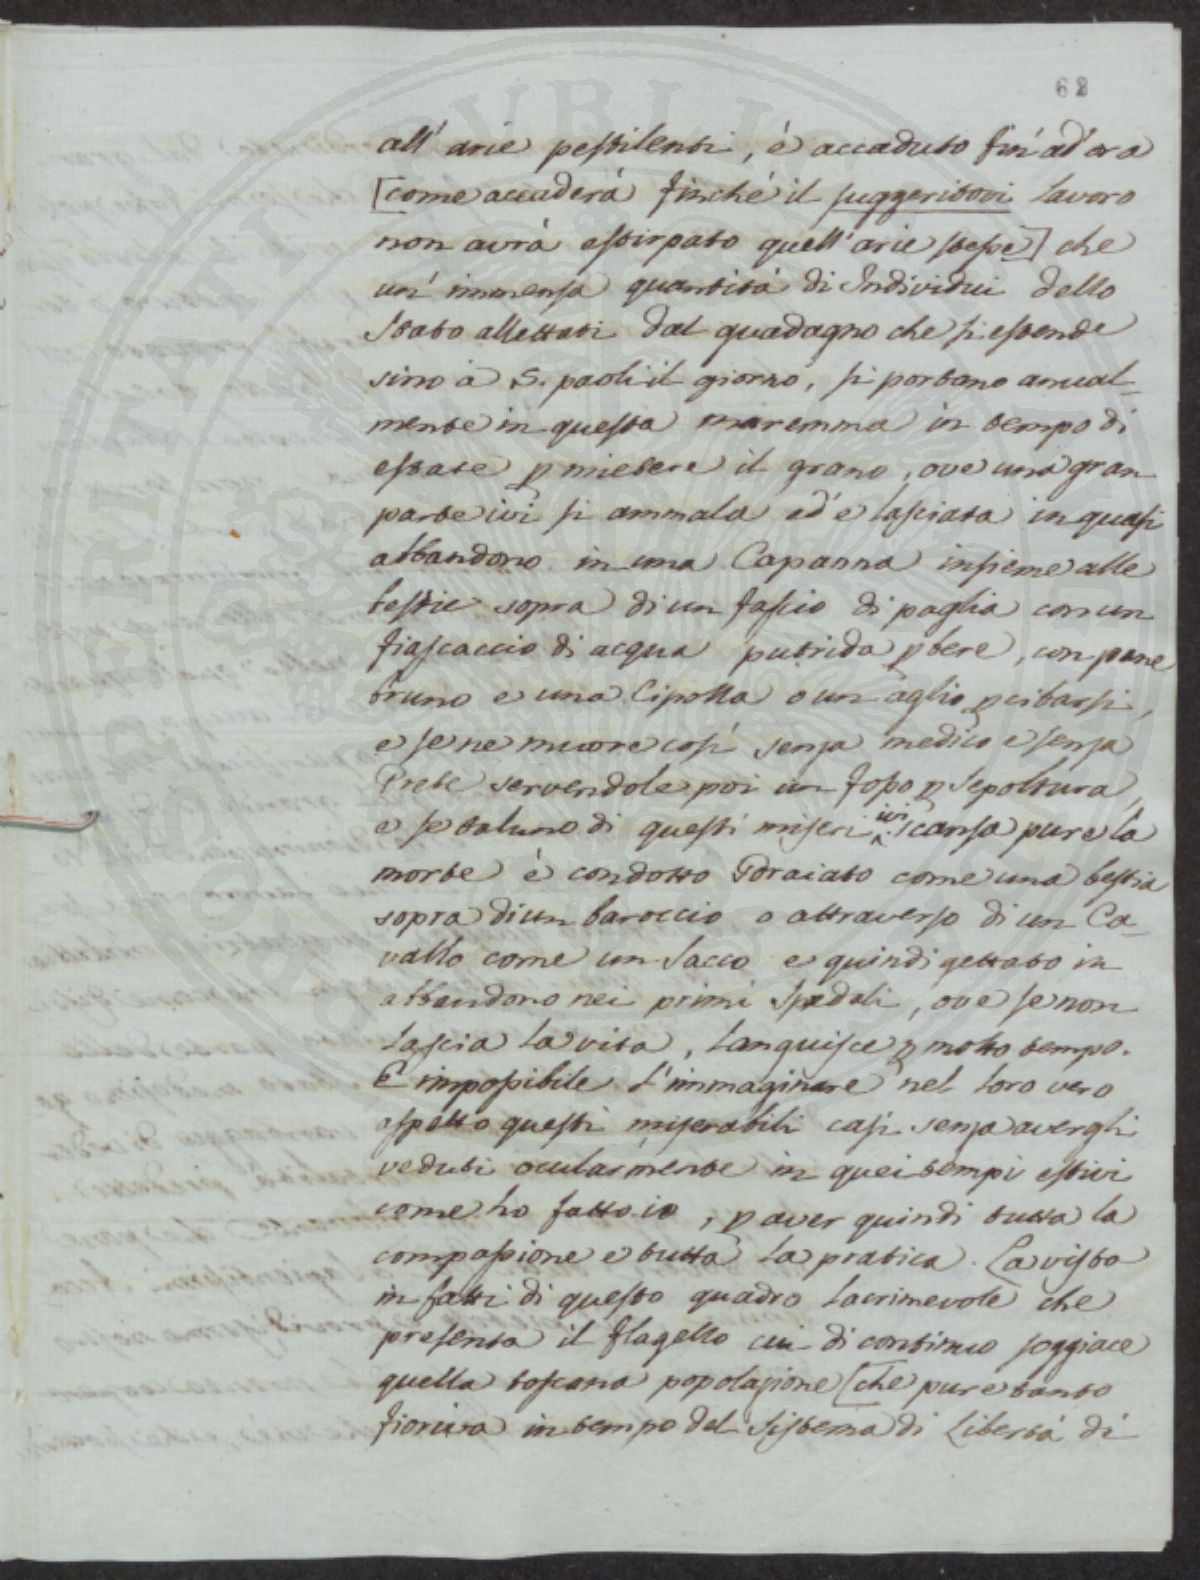 62
all' arie pestilenti, è accaduto fin'ad'ora
[come accaderà finché il suggeritovi lavoro
non avrà estirpato quell'arie stesse] che
un' immensa quantità di Individui dello
Stato allettati dal guadagno che si estende
sino a S. paoli il giorno, si portano annual-
mente in questa maremma in tempo di
estate p mietere il grano, ove una gran
parte ivi si ammala ed'è lasciata in quasi
abbandono in una Capanna insieme alle
bestie sopra di un fascio di paglia con un
fiascaccio di acqua putrida p bere, con pane
bruno e una Cipolla o un aglio p cibarsi,
e se ne muore così senza medico e senza
Prete servendole poi un fosso p Sepoltura,
e se taluno di questi miseri ivi scansa pure la
morte è condotto sdraiato come una bestia
sopra di un baroccio o attraverso di un Ca-
vallo come un Sacco e quindi gettato in
abbandono nei primi Spedali, ove se non
lascia la vita, languisce p molto tempo.
E impossibile l'immaginare nel loro vero
aspetto questi miserabili casi senza avergli
veduti ocularmente in quei tempi estivi
come ho fatto io, p aver quindi tutta la
compassione e tutta la pratica. La vista
in fatti di questo quadro lacrimevole che
presenta il flagello cui di continuo soggiace
quella toscana popolazione [che pure tanto
fioriva in tempo del Sistema di Libertà di